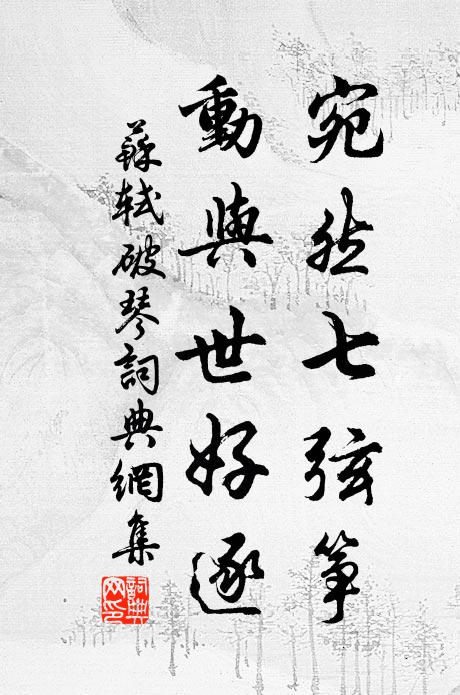 宛然七弦箏
動與世好逐
蘇軾破琴詞典網集
詞典網印